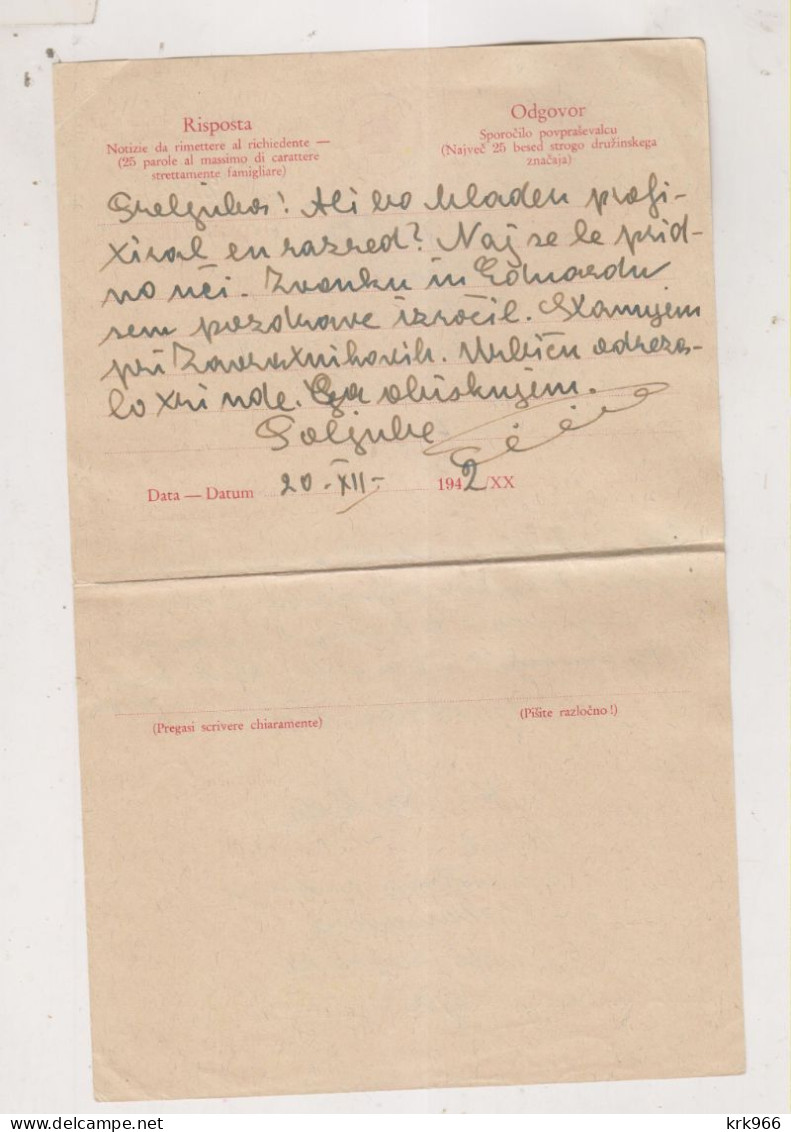 Risposta
Notizie da rimettere al richiedente —
(25 parole al massimo di carattere
strettamente famigliare)
Odgovor
Sporočilo povpraševalcu
(Največ 25 besed strogo družinskega
značaja)
Preljuba! Ali bo Mladen profi-
tiral en razred? Naj se le prid-
no uči. Zvonku in Eduardu
sem pozdrave izročil. Stanujem
pri Zavratnikovih. odreza-
lo tri ude. Ga obiskujem.
Poljube
Data — Datum 20 - XII - 1942/XX
(Pregasi scrivere chiaramente)
(Pišite razločno!)
krk966